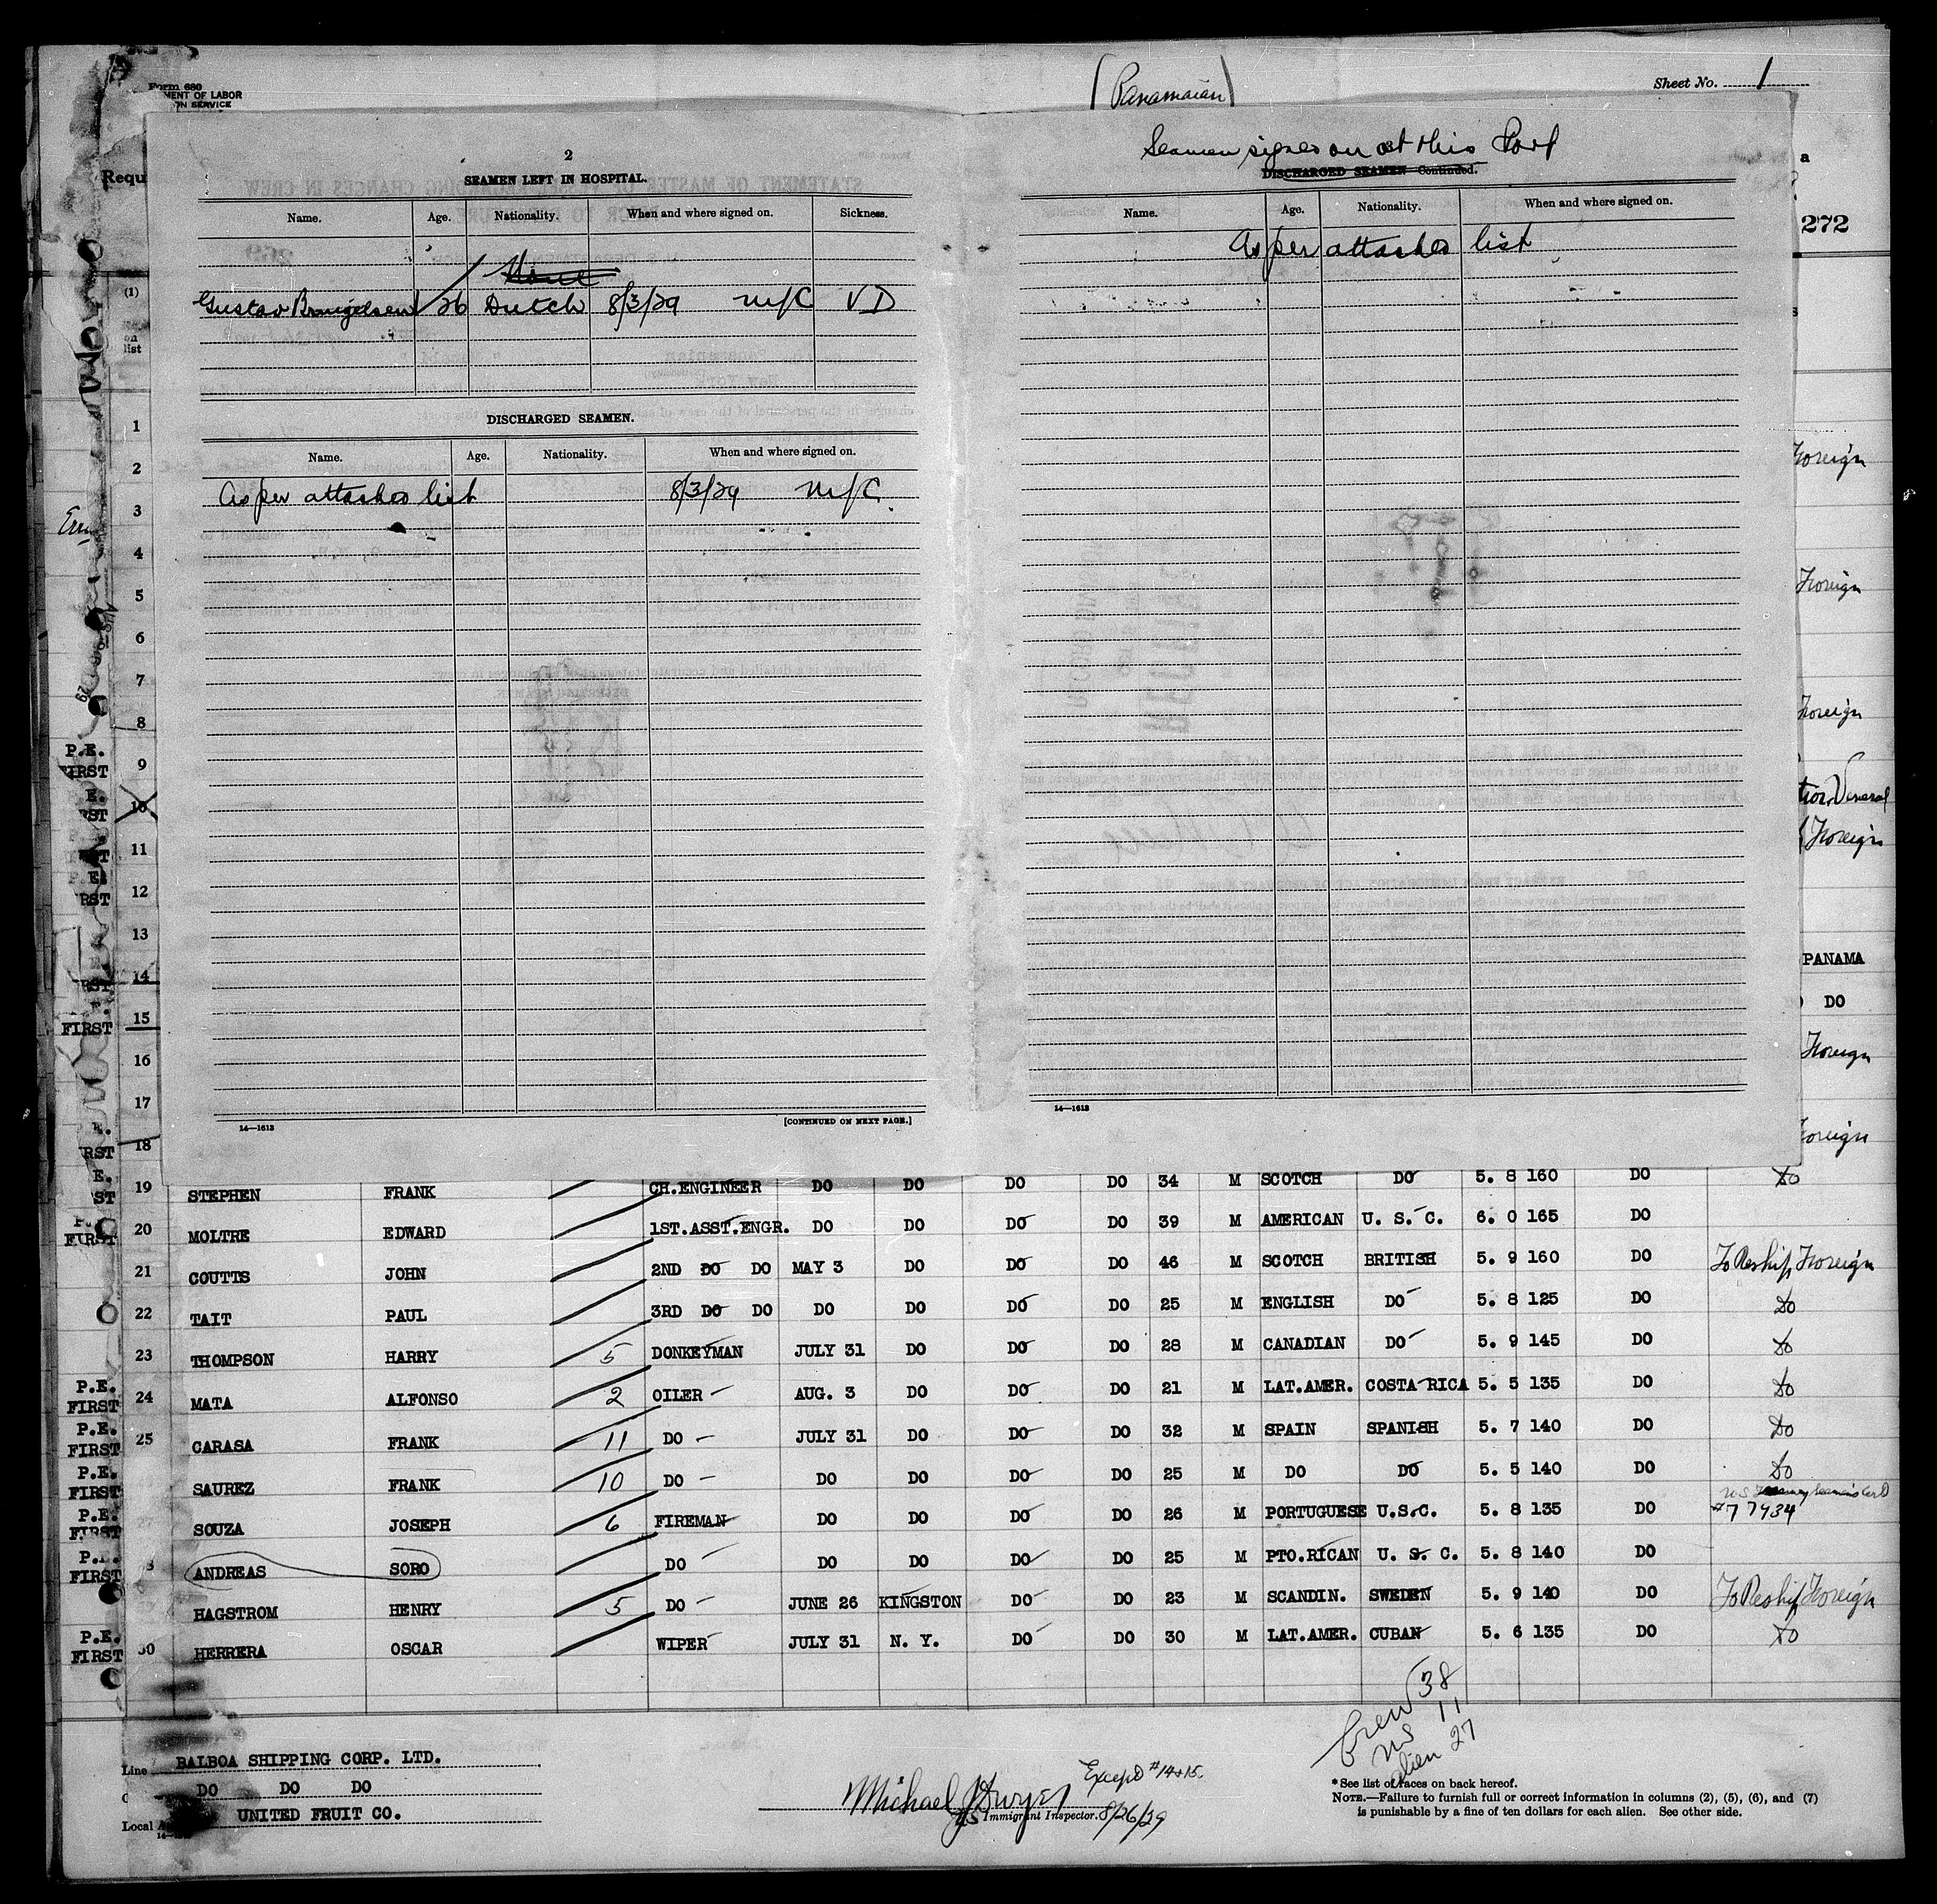 Form 680
MENT OF LABOR
ON SERVICE
(Panamaian)
Sheet No. 1
Requ
a
272
2
SEAMEN LEFT IN HOSPITAL.
Name. Age. Nationality. When and where signed on. Sickness.
None
Gustav 26 Dutch 8/3/29 N.Y.C VD
DISCHARGED SEAMEN.
Name. Age. Nationality. When and where signed on.
As per attached list 8/3/29 N.Y.C.
14—1613
[CONTINUED ON NEXT PAGE.]
Seamen signed on at this Port
DISCHARGED SEAMEN—Continued.
Name. Age. Nationality. When and where signed on.
As per attached list
14—1613
(1)
on
list
1
2 Foreign
3
4
5 Foreign
6
7
8 Foreign
P.E. FIRST 9
10 General
11 Foreign
12
13
14 PANAMA
FIRST 15 DO
16 Foreign
17
18 Foreign
19 STEPHEN FRANK CH.ENGINEER DO DO DO DO 34 M SCOTCH DO 5. 8 160 DO Do
20 MOLTRE EDWARD 1ST.ASST.ENGR. DO DO DO DO 39 M AMERICAN U. S. C. 6. 0 165 DO
21 COUTTS JOHN 2ND DO DO MAY 3 DO DO DO 46 M SCOTCH BRITISH 5. 9 160 DO To Reship Foreign
22 TAIT PAUL 3RD DO DO DO DO DO DO 25 M ENGLISH DO 5. 8 125 DO Do
23 THOMPSON HARRY 5 DONKEYMAN JULY 31 DO DO DO 28 M CANADIAN DO 5. 9 145 DO Do
P.E. FIRST 24 MATA ALFONSO 2 OILER AUG. 3 DO DO DO 21 M LAT.AMER. COSTA RICA 5. 5 135 DO Do
P.E. FIRST 25 CARASA FRANK 11 DO JULY 31 DO DO DO 32 M SPAIN SPANISH 5. 7 140 DO Do
P.E. FIRST SAUREZ FRANK 10 DO DO DO DO DO 25 M DO DO 5. 5 140 DO Do
P.E. FIRST 27 SOUZA JOSEPH 6 FIREMAN DO DO DO DO 26 M PORTUGUESE U.S.C. 5. 8 135 DO #77934
P.E. FIRST 8 ANDREAS SORO DO DO DO DO DO 25 M PTO.RICAN U. S. C. 5. 8 140 DO
HAGSTROM HENRY 5 DO JUNE 26 KINGSTON DO DO 23 M SCANDIN. SWEDEN 5. 9 140 DO To Reship Foreign
P.E. FIRST 30 HERRERA OSCAR WIPER JULY 31 N. Y. DO DO 30 M LAT.AMER. CUBAN 5. 6 135 DO Do
Crew 38
US 11
alien 27
Line BALBOA SHIPPING CORP. LTD.
DO DO DO
Local UNITED FRUIT CO.
Except #14+15.
Michael J Dwyer
US Immigrant Inspector. 8/26/29
* See list of races on back hereof.
NOTE.—Failure to furnish full or correct information in columns (2), (5), (6), and (7)
is punishable by a fine of ten dollars for each alien. See other side.